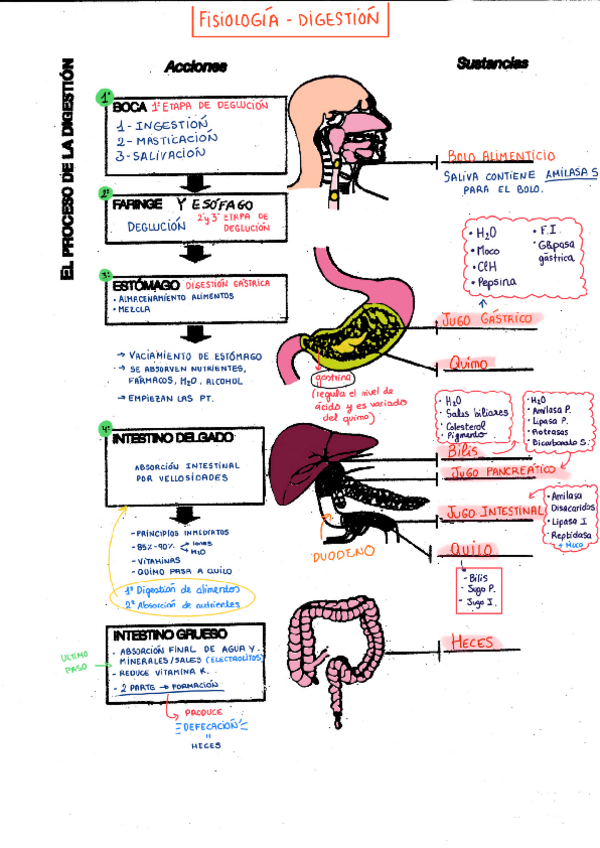 FISIOLOGÍA - DIGESTIÓN
EL PROCESO DE LA DIGESTIÓN
Acciones
Sustancias
1º
BOCA 1ª ETAPA DE DEGLUCIÓN
1- INGESTIÓN
2- MASTICACIÓN
3- SALIVACIÓN
BOLO ALIMENTICIO
SALIVA CONTIENE AMILASA S
PARA EL BOLO.
2º
FARINGE Y ESÓFAGO
DEGLUCIÓN
2ª y 3ª ETAPA DE
DEGLUCIÓN
3º
ESTÓMAGO DIGESTIÓN GÁSTRICA
• ALMACENAMIENTO ALIMENTOS
• MEZCLA
→ VACIAMIENTO DE ESTÓMAGO
→ SE ABSORVEN NUTRIENTES,
FÁRMACOS, H2O, ALCOHOL
→ EMPIEZAN LAS PT.
• H2O
• Moco
• ClH
• Pepsina
• F.I.
• G&pasa
gástrica
JUGO GÁSTRICO
Quimo
gastrina
(regula el nivel de
ácido y es variados
del quimo)
4º
INTESTINO DELGADO
ABSORCIÓN INTESTINAL
POR VELLOSIDADES
- PRINCIPIOS INMEDIATOS
- 85%-90% Iones
H2O
- VITAMINAS
- QUIMO PASA A QUILO
1º Digestión de alimentos
2º Absorción de nutrientes
• H2O
• Sales biliares
• Colesterol
Pigmento
• H2O
• Amilasa P.
• Lipasa P.
• Protrasas
• Bicarbonato S.
BILIS
JUGO PANCREÁTICO
JUGO INTESTINAL
• Amilasa
Disacaridos
• Lipasa I
• Peptidasa
+ Moco
DUODENO
QUILO
- Bilis
- Jugo P.
- Jugo I.
ULTIMO
PASO
INTESTINO GRUESO
• ABSORCIÓN FINAL DE AGUA Y
MINERALES/SALES (ELECTROLITOS)
- REDUCE VITAMINA K.
- 2 PARTE → FORMACIÓN
PRODUCE
DEFECACIÓN
=
HECES
HECES